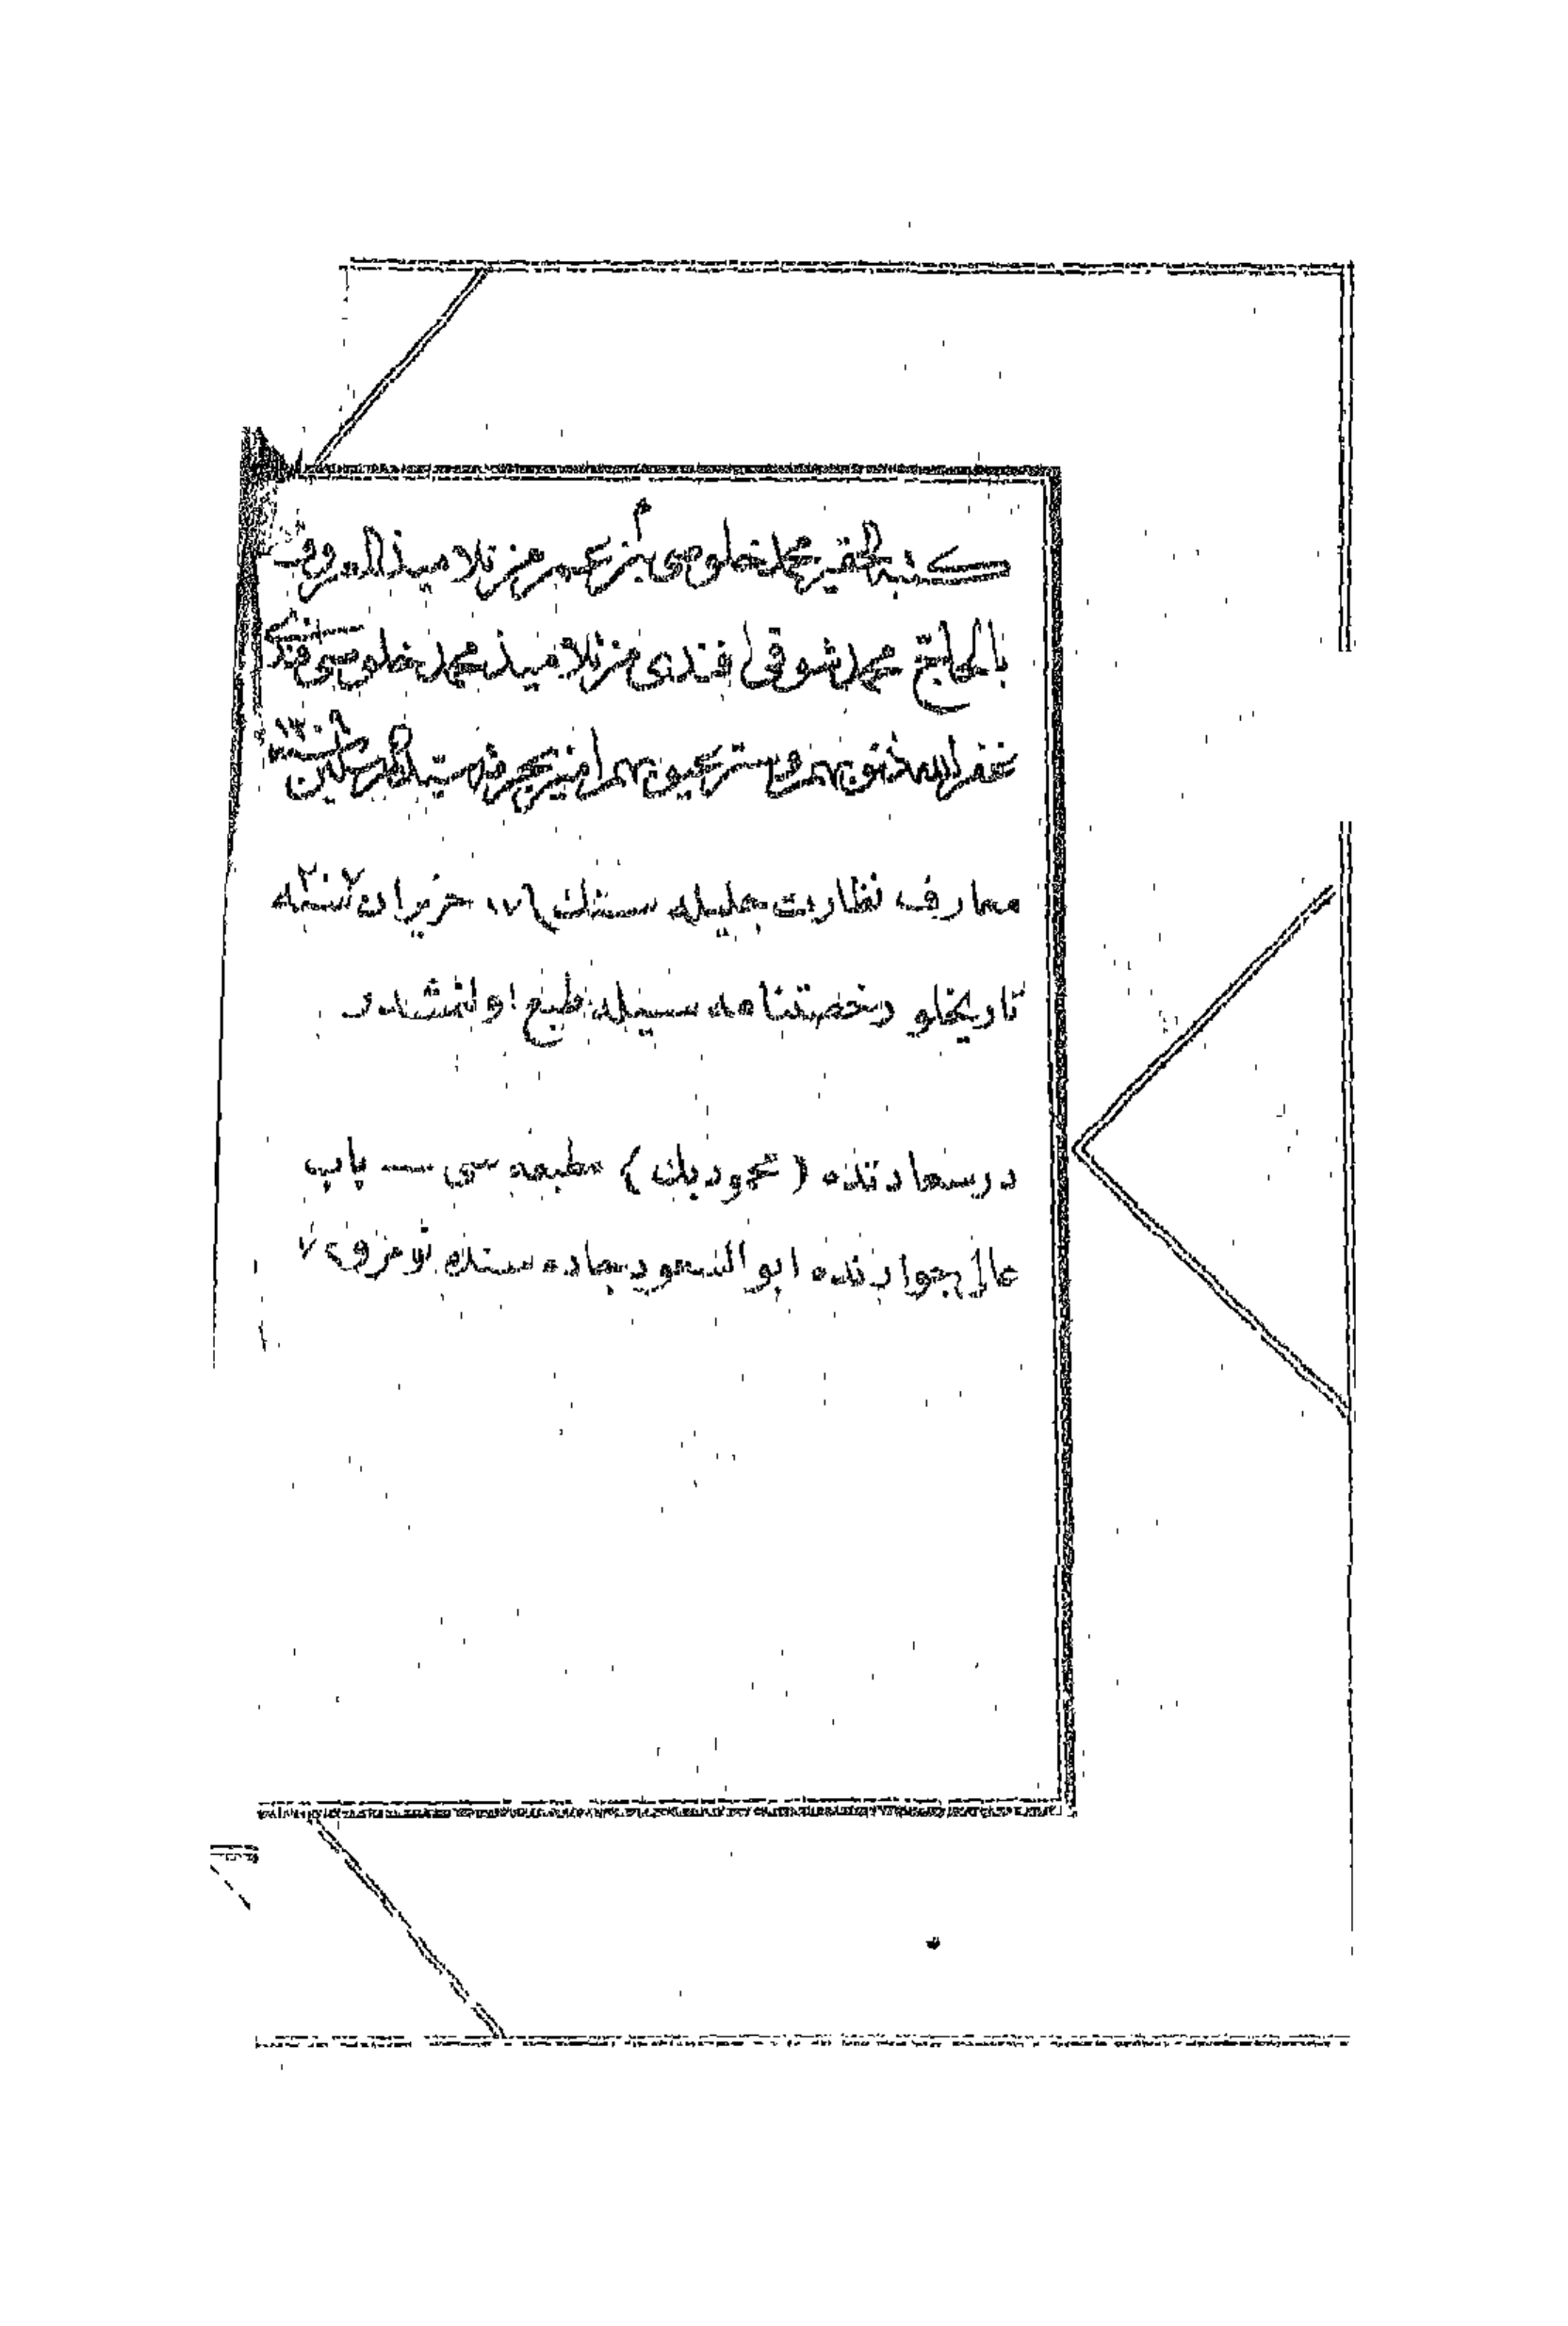 كتبه الحقير محمد خلوصى من تلاميذ المعروف
بالحاج محمد شوقى افندى من تلاميذ محمد خلوصى افندى
غفر الله ذنوبهم وستر عيوبهم امين بحرمة سيد المرسلين سنه ١٣٠٩
معارف نظارت جليله سنك ١٧ حزيران سنه ٣٠٧
تاريخلو رخصتنامه سيله طبع اولنمشدر
درسعادتده (محمود بك) مطبعه سى — باب
عالى جوارنده ابو السعود جاده سنده نومرو ٧